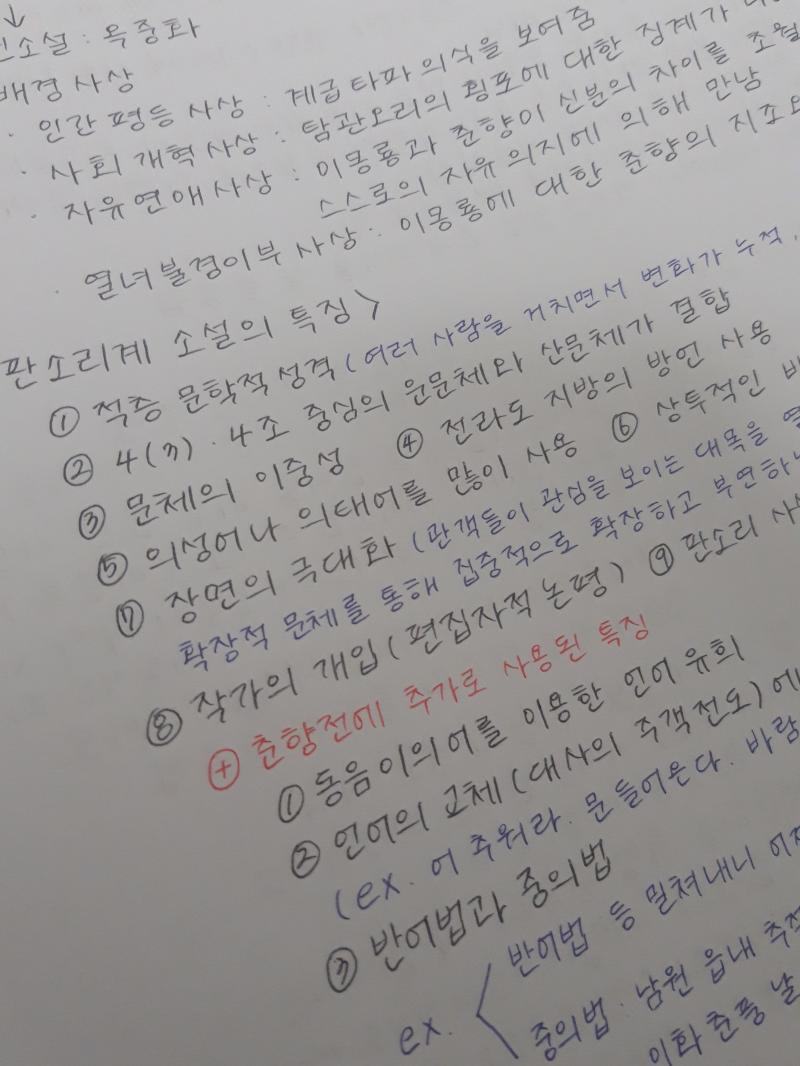 ↓
소설 : 옥중화
배경사상
· 인간 평등 사상 : 계급타파 의식을 보여줌
· 사회 개혁 사상 : 탐관오리의 횡포에 대한 징계가
· 자유연애사상 : 이몽룡과 춘향이 신분의 차이를 초월
스스로의 자유 의지에 의해 만남
· 열녀불경이부 사상 : 이몽룡에 대한 춘향의 지조
판소리계 소설의 특징 >
① 적층 문학적 성격 (여러 사람을 거치면서 변화가 누적.
② 4(3)·4조 중심의 운문체와 산문체가 결합
③ 문체의 이중성 ④ 전라도 지방의 방언 사용
⑤ 의성어나 의태어를 많이 사용 ⑥ 상투적인
⑦ 장면의 극대화 (관객들이 관심을 보이는 대목을
확장적 문체를 통해 집중적으로 확장하고 부연하
⑧ 작가의 개입 (편집자적 논평) ⑨ 판소리
⊕ 춘향전에 추가로 사용된 특징
① 동음이의어를 이용한 언어 유희
② 언어의 교체 (대사의 주객전도)에
(ex. 어 추워라. 문 들어온다. 바람
③ 반어법과 중의법
ex. < 반어법 등 밀쳐내니
중의법. 남원 읍내
이화춘풍 날